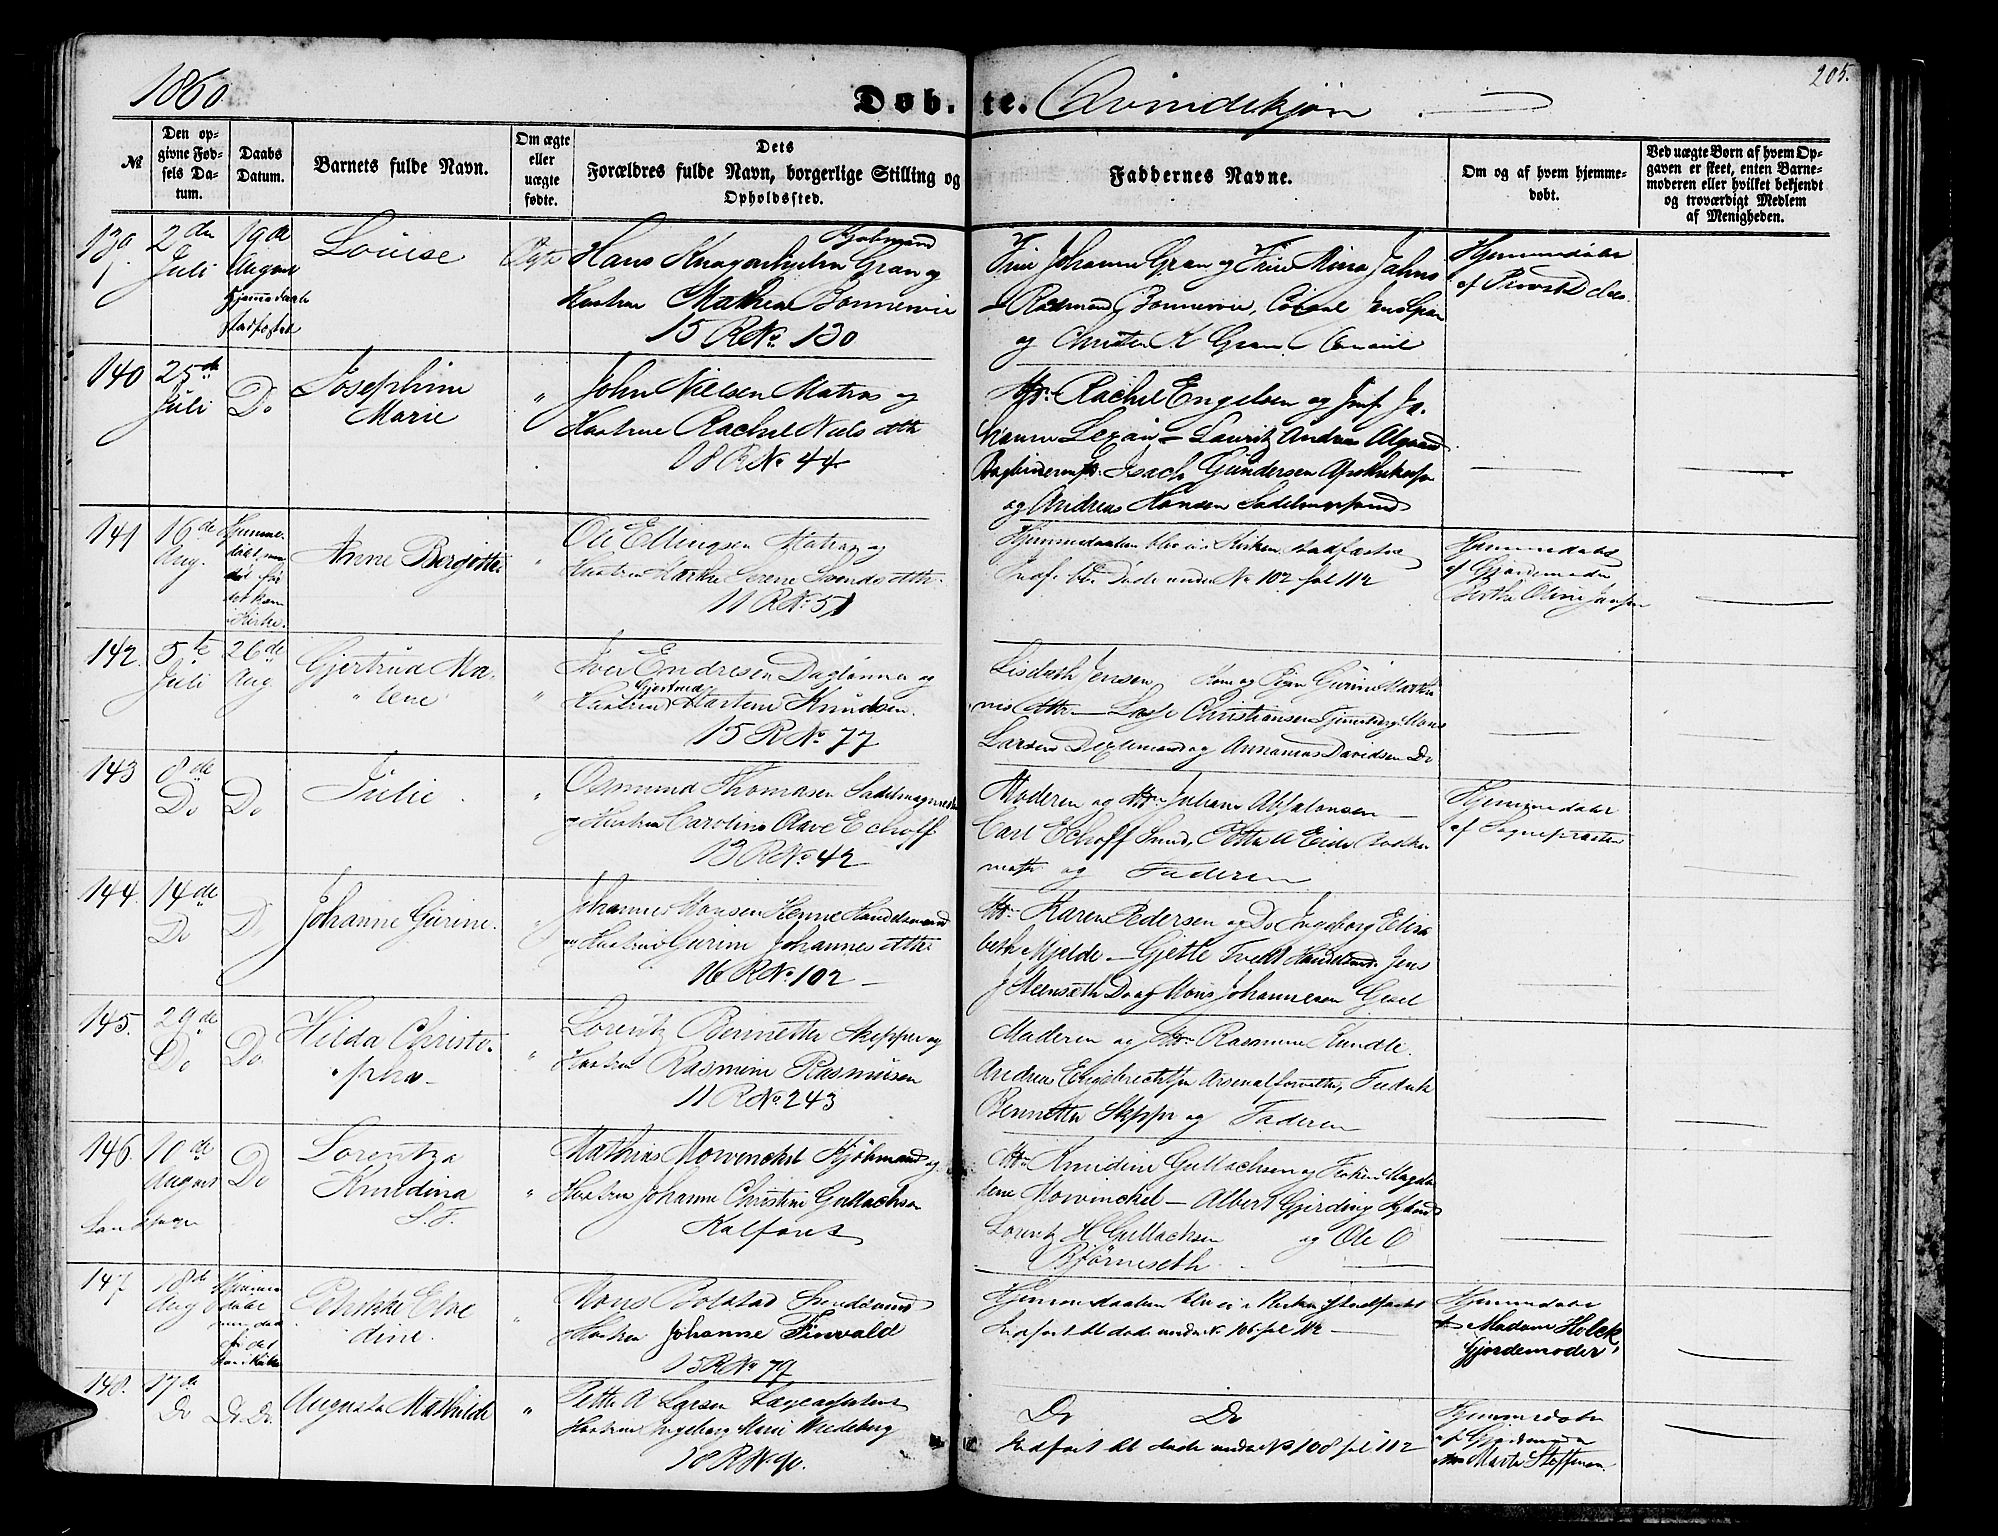 1860.
Døb-te. Qvindekjøn
205.
№
Den opgivne Fødsels Datum.
Daabs Datum.
Barnets fulde Navn.
Om ægte eller uægte fødte.
Dets Forældres fulde Navn, borgerlige Stilling og Opholdssted.
Faddernes Navne.
Om og af hvem hjemmedøbt.
Ved uægte Børn af hvem Opgaven er skeet, enten Barnemoderen eller hvilket bekjendt og troværdigt Medlem af Menigheden.
139
2den Juli
19de August
Hjemmedaab stadfæstet
Louise
Ægte
Hans Knagenhjelm Gran Kjøbmand og
Hustrue Mathea Bonnevie
15 R No 130
Frue Johanne Gran og Frue Jahns
Rasmus Bonnevie, Consul Jens Gran
og Christen K Gran Consul
Hjemmedøbt
af Provst
140
25de Juli
Do
Josephine
Marie
"
John Nielsen Matros og
Hustrue Rachel Niels Dtr
18 R No 44
Md. Rachel Engelsen og Jmf. Jo-
hanne Lexau - Lauritz Andreas Algaard
Isach Gundersen
og Andreas Hansen Sadelmagersvend
141
16de Aug.
Hjemmedøbt, men død før det kom i Kirke.
Anne Bergitte
"
Ole Ellingsen Matros og
Hustrue Marthe Serene Dtr.
11 R No 51
Hjemmedaaben blev ei i Kirken stadfæstet
Indf. bl. Døde under No 102 fol 112
Hjemmedøbt
af Gjordemoder
Berthe Oline
142.
5te Juli
26de Aug
Gjertrud Ma-
" lene
"
Iver Endresen Daglønner og
Hustrue Gjertrud Martine Knudsen.
15 R No 77
Lisebeth Jensen Kone og Pigen Gurine Marthi-
nes Dtr - Lasse Christiansen Hans
Larsen og Annanias Davidsen Do
143
8de Do
Do
Julie
"
Osmund Thomasen Sadelmagermester
og Hustrue Caroline Olave Echoff
13 R No 42
Moderen og Md. Johane Absalonsen
Carl Echoff Smed, Petter A Eide
og Faderen
Hjemmedøbt
af Sognepræsten
144.
14de Do
Do
Johanne Gurine.
"
Johannes Monsen Henne Handelsmand
og Hustrue Gurine Johannes Dtr
16 R No 102
Md. Karen Pedersen og Do Ingeborg Elisa-
beth Mjelde - Gjette Tvedt Handelsmd. Jens
J Steensæth Do og Mons Johannesen Gesel
145.
29de Do
Do.
Hilda Christo-
" pha
"
Lorentz Bennetter Skipper og
Hustrue Rasmine Rasmusen
11 R No 243
Moderen og Md. Rasmine Kundte.
Andreas Engebrechtsen Arsenalforvalter, Fredrik
Bennetter Skipper og Faderen
146.
10de August
Do
Landsogn
Lorentza
Knuddina
S. F.
"
Mathias Mowinckel Kjøbmand og
Hustrue Johanne Christine Gullachsen
Kalfaret
Md. Knudine Gullachsen og Frøken Magda-
lene Mowinckel - Albert Gjerding Kjøbmd
Lorentz H Gullachsen og Ole O
Bjørneseth
147.
18de Aug
Hjemmedøbt men død før det kom i Kirke
Petrikke Elve
dine.
"
Mons Bolstad
Hustrue Johanne Finvald
15 R No 79
Hjemmedaaben blev ei i Kirken stadfæstet
Indført bl døde under No 106 fol 112
Hjemmedøbt
af Madam Holck
Gjordemoder
148.
17de Do
Do Do
Augusta Mathilde
"
Petter A Larsen
Hustrue Ingeborg Marie Wiedeberg
18 R No 90.
Do Do
Indført bl døde under No 108 fol 112
Hjemmedøbt
af Gjordemoder
Marta Steffensen